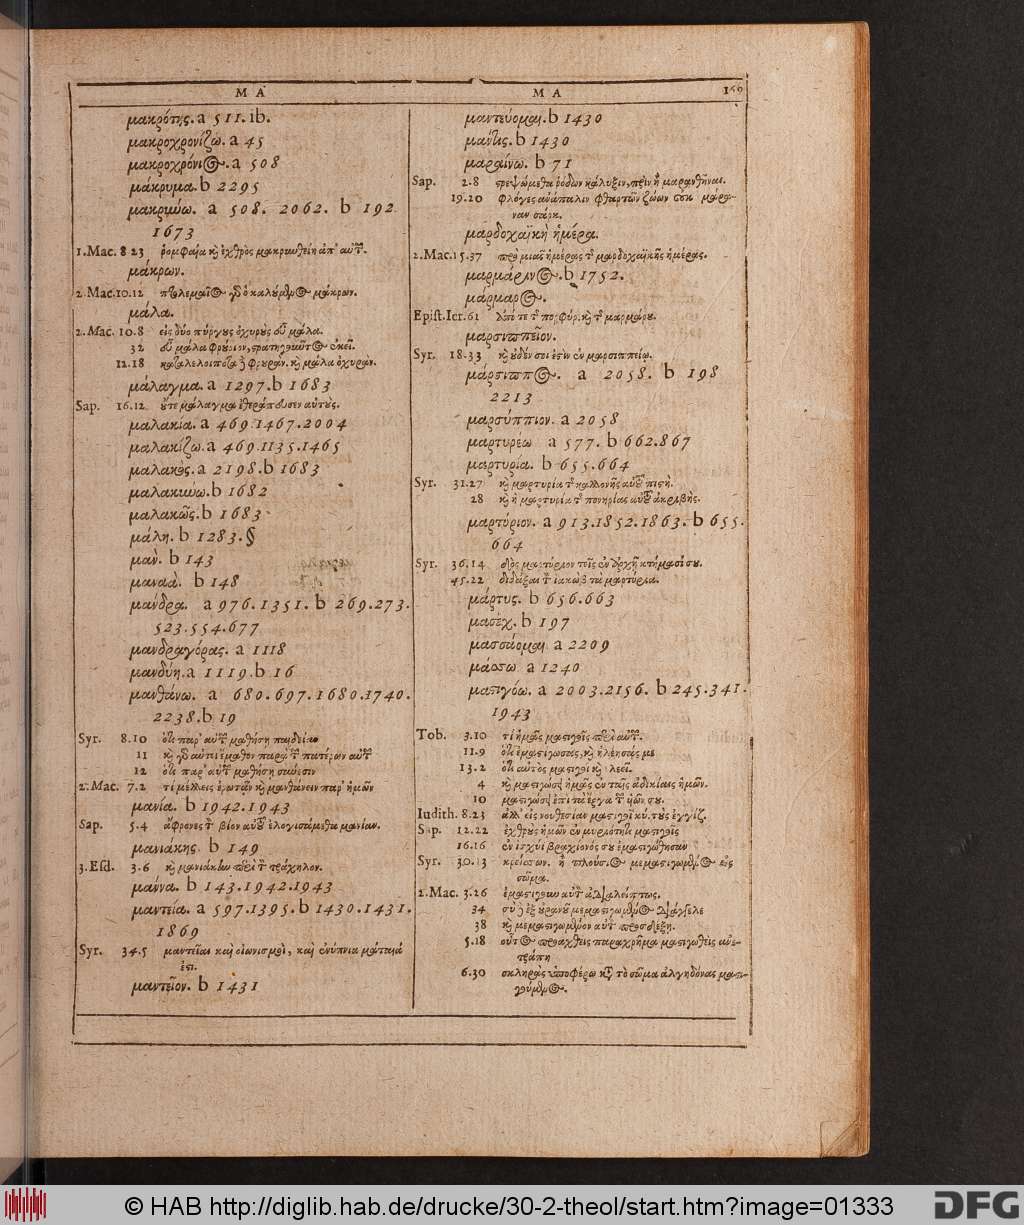 MA MA 169
μακρότης. a 511. ib.
μακροχρονίζω. a 45
μακροχρόνιος. a 508
μάκρυμα. b 2295
μακρύνω. a 508. 2062. b 192
1673
1. Mac. 8 23 ῥομφαία κὶ ἐχθρὸς μακρυνθείη ἀπ' αὐτῶν.
μάκρων.
2. Mac. 10.12 πτολεμαῖος γὸ ὁ καλούμενος μάκρων.
μάλα.
2. Mac. 10.8 εἰς δύο πύργους ὀχυροὺς εὖ μάλα.
32 εὖ μάλα φρούριον, στρατηγοῦντος ἐκεῖ.
12.18 καταλελοιπότα δὲ φρουρὰν. κὶ μάλα ὀχυράν.
μάλαγμα. a 1297. b 1683
Sap. 16.12 οὔτε μάλαγμα ἐθεράπευσεν αὐτούς.
μαλακία. a 469. 1467. 2004
μαλακίζω. a 469. 1135. 1465
μαλακός. a 2198. b 1683
μαλακύνω. b 1682
μαλακῶς. b 1683
μάλη. b 1283. §
μαν. b 143
μαναά. b 148
μάνδρα. a 976. 1351. b 269. 273.
523. 554. 677
μανδραγόρας. a 1118
μανδύη. a 1119. b 16
μανθάνω. a 680. 697. 1680. 1740.
2238. b 19
Syr. 8.10 ὅτι παρ' αὐτῶν μαθήσῃ παιδείαν
11 κὶ γὸ αὐτοὶ ἔμαθον παρὰ τῶν πατέρων αὐτῶν
12 ὅτι παρ' αὐτῶν μαθήσῃ σύνεσιν
2. Mac. 7.2 τί μέλλεις ἐρωτᾶν κὶ μανθάνειν παρ' ἡμῶν
μανία. b 1942. 1943
Sap. 5.4 ἄφρονες τὸν βίον αὐτοῦ ἐλογισάμεθα μανίαν.
μανιάκης b 149
3. Esd. 3.6 κὶ μανιάκην περὶ τὸν τράχηλον.
μάννα. b 143. 1942. 1943
μαντεία. a 597. 1395. b 1430. 1431.
1869
Syr. 34.5 μαντεῖαι καὶ οἰωνισμοὶ, καὶ ἐνύπνια μάταιά
ἐστι.
μαντεῖον. b 1431
μαντεύομαι. b 1430
μάντις. b 1430
μαραίνω. b 71
Sap. 2.8 στεψώμεθα ῥόδων κάλυξιν, πρὶν ἢ μαρανθῆναι.
19.20 φλόγες ἀνάπαλιν φθαρτῶν ζώων οὐκ μάρα-
ναν σάρκ.
μαρδοχαϊκὴ ἡμέρα.
2. Mac. 15.37 πρὸ μιᾶς ἡμέρας τῆς μαρδοχαϊκῆς ἡμέρας.
μαρμάρινος. b 1752.
μάρμαρος.
Epist. Ier. 61 ἀπό τε τῆς πορφύρ. κὶ τῆς μαρμάρου.
μαρσιππεῖον.
Syr. 18.33 κὶ οὐδέν σοι ἐστὶν ἐν μαρσιππείῳ.
μάρσιππος. a 2058. b 198
2213
μαρσύππιον. a 2058
μαρτυρέω a 577. b 662. 867
μαρτυρία. b 655. 664
Syr. 31.27 κὶ μαρτυρία τῆς καλλονῆς αὐτοῦ πιστή.
28 κὶ ἡ μαρτυρία τῆς πονηρίας αὐτοῦ ἀκριβής.
μαρτύριον. a 913. 1852. 1863. b 655.
664
Syr. 36.14 δὸς μαρτύριον τοῖς ἐν ἀρχῇ κτήμασί σου.
45.22 διδάξαι τὸν ἰακὼβ τὰ μαρτύρια.
μάρτυς. b 656. 663
μασέχ. b 197
μασσάομαι a 2209
μάσσω a 1240
μαστιγόω. a 2003. 2156. b 245. 341.
1943
Tob. 3.10 τί ἡμᾶς μαστιγοῖς περὶ αὐτῶν.
11.9 ὅτι ἐμαστίγωσας, κὶ ἠλέησάς με
13.2 ὅτι αὐτὸς μαστιγοῖ κὶ ἐλεεῖ.
4 κὶ μαστιγώσει ἡμᾶς ἐν ταῖς ἀδικίαις ἡμῶν.
10 μαστιγώσει ἐπὶ τὰ ἔργα τῶν υἱῶν σου.
Iudith. 8.23 ἀλλ' εἰς νουθεσίαν μαστιγοῖ κύ. τοὺς ἐγγίζ.
Sap. 12.22 ἐχθροὺς ἡμῶν ἐν μυριότητι μαστιγοῖς
16.16 ἐν ἰσχύϊ βραχίονός σου ἐμαστιγώθησαν
Syr. 30.13 κρείσσων. ἢ πλούσιος μεμαστιγωμένος εἰς
σῶμα.
2. Mac. 3.26 ἐμαστίγουν αὐτὸν ἀδιαλείπτως.
34 σὺ δὲ ἐξ οὐρανοῦ μεμαστιγωμένος διάγγελε
38 κὶ μεμαστιγωμένον αὐτὸν προσδέξῃ.
5.18 οὗτος προαχθεὶς παραχρῆμα μαστιγωθεὶς ἀνε-
τράπη
6.30 σκληρὰς ὑποφέρω κατὰ τὸ σῶμα ἀλγηδόνας μαστι-
γούμενος.
© HAB http://diglib.hab.de/drucke/30-2-theol/start.htm?image=01333
DFG